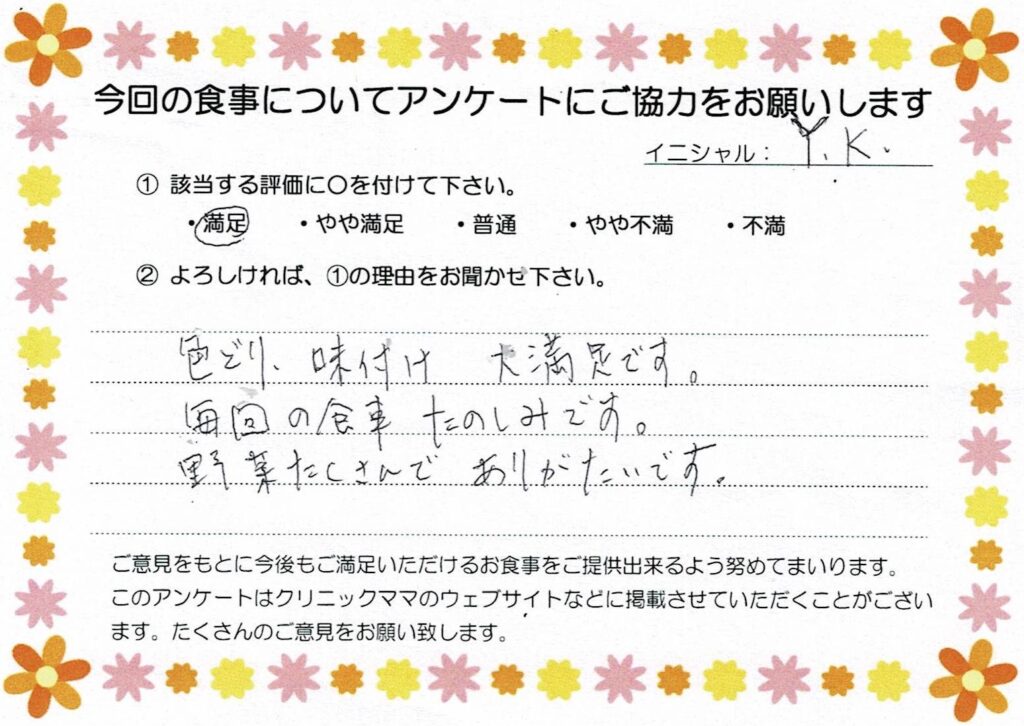 今回の食事についてアンケートにご協力をお願いします
イニシャル： Y. K.
① 該当する評価に〇を付けて下さい。
・満足 ・やや満足 ・普通 ・やや不満 ・不満
② よろしければ、①の理由をお聞かせ下さい。
色どり、味付け 大満足です。
毎回の食事 たのしみです。
野菜たくさんで ありがたいです。
ご意見をもとに今後もご満足いただけるお食事をご提供出来るよう努めてまいります。
このアンケートはクリニックママのウェブサイトなどに掲載させていただくことがござい
ます。たくさんのご意見をお願い致します。